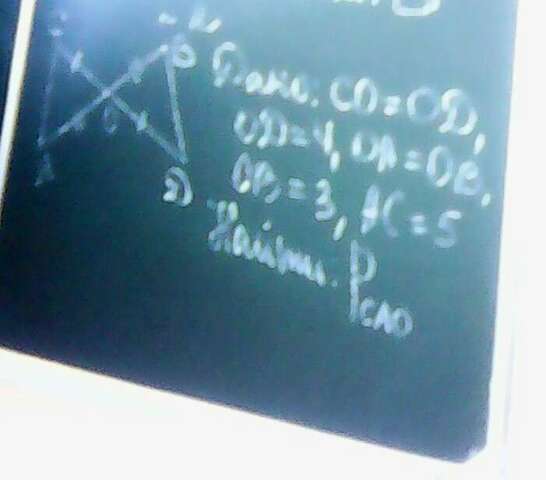 B
O
A
D
Дано: CO=OD,
OD=4, OA=OB,
OB=3, AC=5
Найти: P CAO